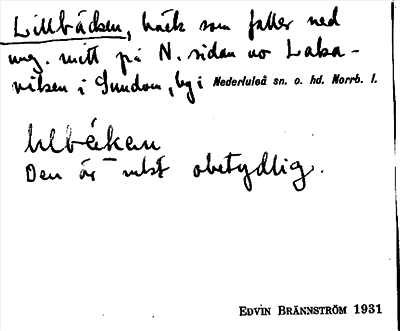 Lillbäcken, bäck som faller ned
ung. mitt på N. sidan av Laka-
viken i Sundom, by i Nederluleå sn. o. hd. Norrb. l.
Den är obetydlig.
EDVIN BRÄNNSTRÖM 1931